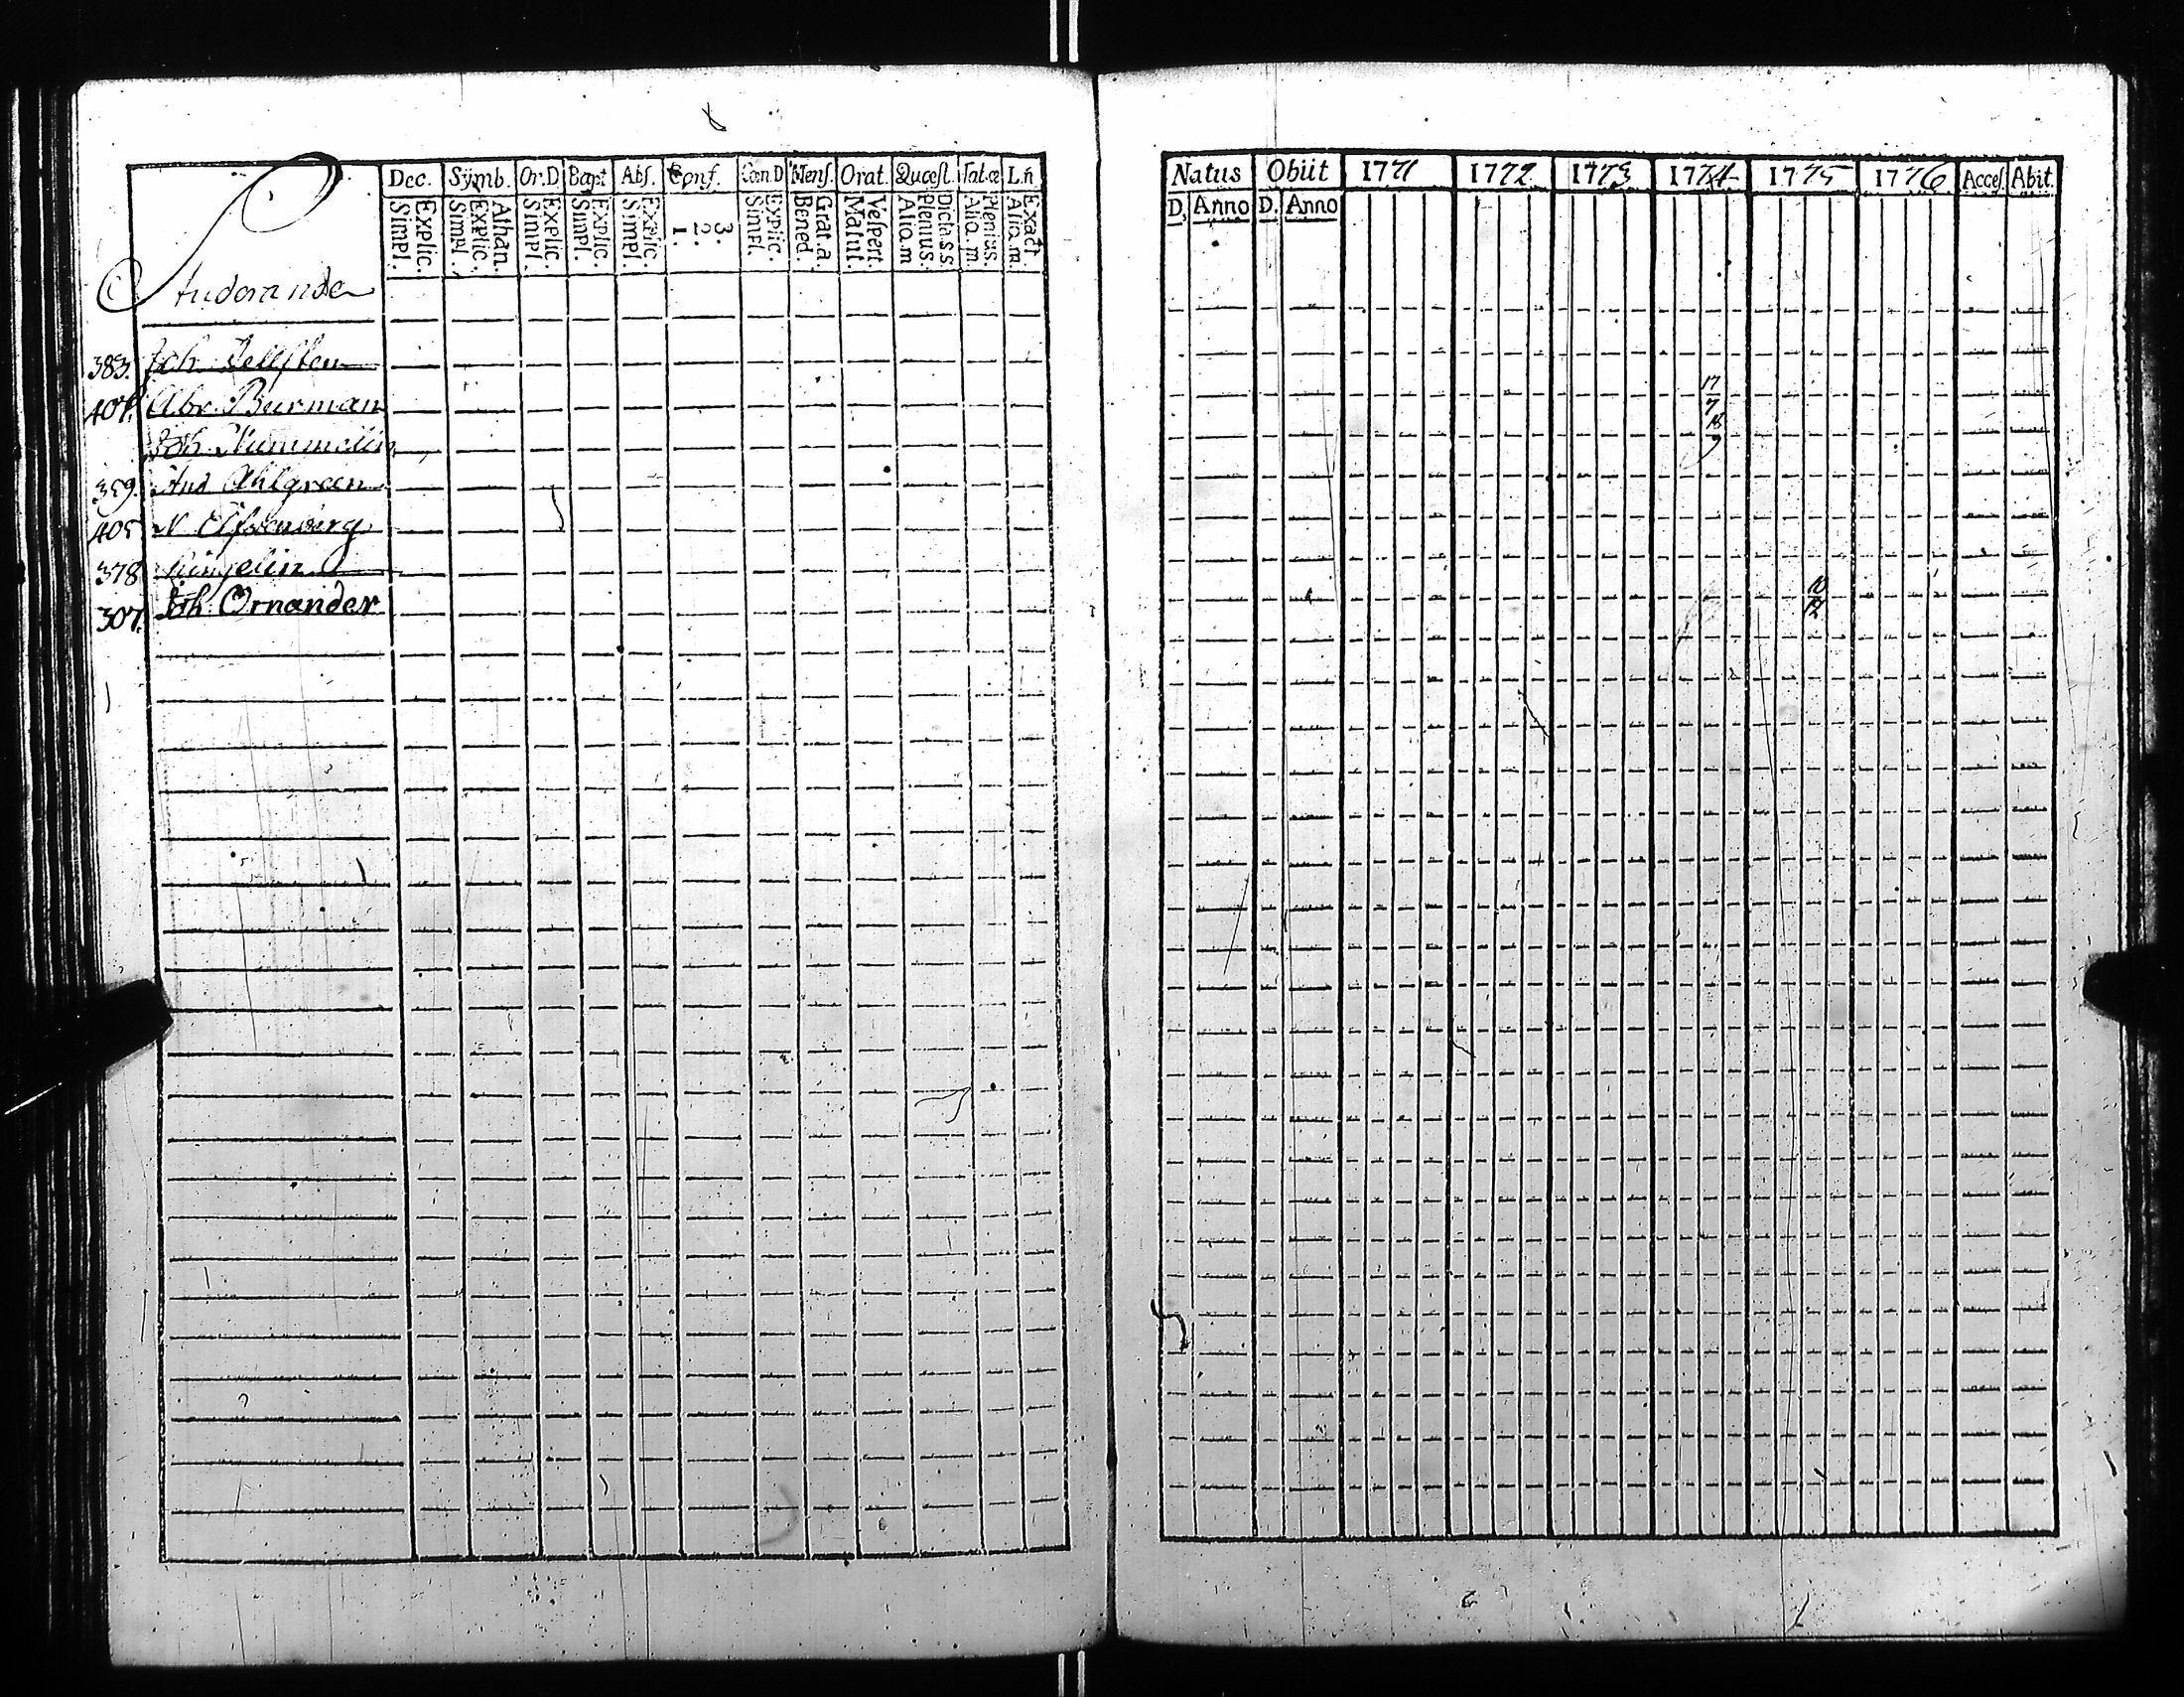 Dec. Symb. Or.D. Bapt. Abs. Conf. Cœn.D Mens. Orat. Quæst. Tab.œ L.n
Explic. Simpl. Athan. Explic. Simpl. Explic. Simpl. Explic. Simpl. Explic. Simpl. 3. 2. 1. Explic. Simpl. Grat.a. Bened. Vespert. Matut. Dict.s.s. Plenius. Aliq.m Plenius. Aliq.m. Exact. Aliq.m.
Studerande
383. Joh. Tellsten
407. Abr. Burman
Joh. Nummelin
359. And Ahlgreen
405. N.
378
307. Joh. Ornander
Natus Obiit 1771 1772 1773 1774 1775 1776 Acces. Abit.
D. Anno D. Anno
17
7
18
9
10
12